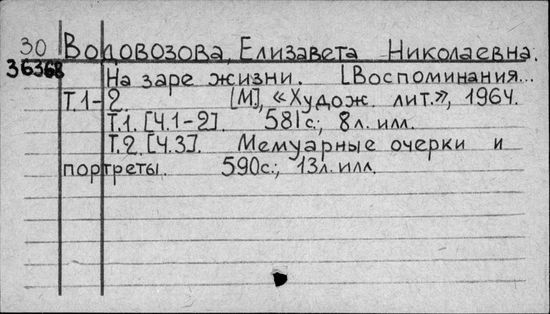 30 Водовозова, Елизавета Николаевна.
36368
На заре жизни. [Воспоминания...
Т.1-2. [М], «Худож. лит.», 1964.
Т.1. [Ч.1-2]. 581с.; 8л. илл.
Т.2. [Ч.3]. Мемуарные очерки и
портреты. 590с.; 13л. илл.